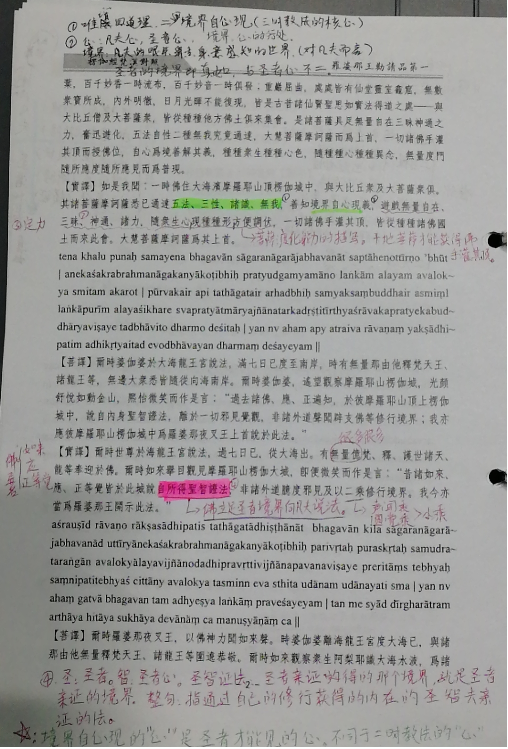 ① 唯識四道理，二、境界自心現（三时教法的核心）
② 心：凡夫心，圣者心。 境界：心的行处
境界：凡夫的眼见耳闻身亲觉知的世界（对凡夫而言）
圣者的境界即真也，与圣者心不二。
羅婆那王勸請品第一
葉，百千妙香一時流布，百千妙音一時俱發；重巖屈曲，處處皆有仙堂靈室龕窟，無數
衆寶所成，内外明徹，日月光暉不能復現，皆是古昔諸仙賢聖思如實法得道之處——與
大比丘僧及大菩薩衆，皆從種種他方佛土俱來集會。是諸菩薩具足無量自在三昧神通之
力，奮迅遊化，五法自性二種無我究竟通達，大慧菩薩摩訶薩而爲上首，一切諸佛手灌
其頂而授佛位，自心爲境善解其義，種種衆生種種心色，隨種種心種種異念，無量度門
隨所應度隨所應見而爲普現。
【實譯】如是我聞：一時佛住大海濱摩羅耶山頂楞伽城中，與大比丘衆及大菩薩衆俱。
其諸菩薩摩訶薩悉已通達五法、三性、諸識、無我，善知境界自心現義，遊戲無量自在、
三昧、神通、諸力，隨衆生心現種種形方便調伏。一切諸佛手灌其頂，皆從種種諸佛國
土而來此會。大慧菩薩摩訶薩爲其上首。
tena khalu punaḥ samayena bhagavān sāgaranāgarājabhavanāt saptāhenottīrṇo 'bhūt
| anekaśakrabrahmanāgakanyākoṭibhiḥ pratyudgamyamāno laṅkām alayam avalok-
ya smitam akarot | pūrvakair api tathāgatair arhadbhiḥ samyaksaṃbuddhair asmiṃl
laṅkāpurīm alayaśikhare svapratyātmāryajñānatarkadṛṣṭitīrthyaśrāvakapratyekabud-
dhāryaviṣaye tadbhāvito dharmo deśitaḥ | yan nv aham apy atraiva rāvaṇaṃ yakṣādhi-
patim adhikṛtyaitad evodbhāvayan dharmaṃ deśayeyam ||
【菩譯】爾時婆伽婆於大海龍王宮說法，滿七日已度至南岸，時有無量那由他釋梵天王、
諸龍王等，無邊大衆悉皆隨從向海南岸。爾時婆伽婆，遙望觀察摩羅耶山楞伽城，光顏
舒悅如動金山，熙怡微笑而作是言：“過去諸佛、應、正遍知，於彼摩羅耶山頂上楞伽
城中，說自内身聖智證法，離於一切邪見覺觀，非諸外道聲聞辟支佛等修行境界；我亦
應彼摩羅耶山楞伽城中爲羅婆那夜叉王上首說於此法。”
【實譯】爾時世尊於海龍王宮說法，過七日已，從大海出。有無量億梵、釋、護世諸天、
龍等奉迎於佛。爾時如來舉目觀見摩羅耶山楞伽大城，即便微笑而作是言：“昔諸如來、
應、正等覺皆於此城說自所得聖智證法，非諸外道臆度邪見及以二乘修行境界。我今亦
當爲羅婆那王開示此法。”
佛立足圣者境界向凡夫说法。
小乘
aśrauṣīd rāvaṇo rākṣasādhipatis tathāgatādhiṣṭhānāt bhagavān kila sāgaranāgarā-
jabhavanād uttīryānekaśakrabrahmanāgakanyākoṭibhiḥ parivṛtaḥ puraskṛtaḥ samudra-
taraṅgān avalokyālayavijñānodadhipravṛttivijñānapavanaviṣaye preritāṃs tebhyaḥ
saṃnipatitebhyaś cittāny avalokya tasminn eva sthita udānam udānayati sma | yan nv
ahaṃ gatvā bhagavan tam adhyeṣya laṅkāṃ praveśayeyam | tan me syād dīrgharātram
arthāya hitāya sukhāya devānāṃ ca manuṣyāṇāṃ ca ||
【菩譯】爾時羅婆那夜叉王，以佛神力聞如來聲。時婆伽婆離海龍王宮度大海已，與諸
那由他無量釋梵天王、諸龍王等圍遶恭敬。爾時如來觀察衆生阿梨耶識大海水波，爲諸
④ 圣：圣者。智：圣者心。圣智证法：圣者亲证的得的那个境界，就是圣者
亲证的境界。整句：指通过自己的修行获得的内在的圣智去亲
证的法。
☆：境界自心现的“心”是圣者才能见的心。不同于二时教法的“心”